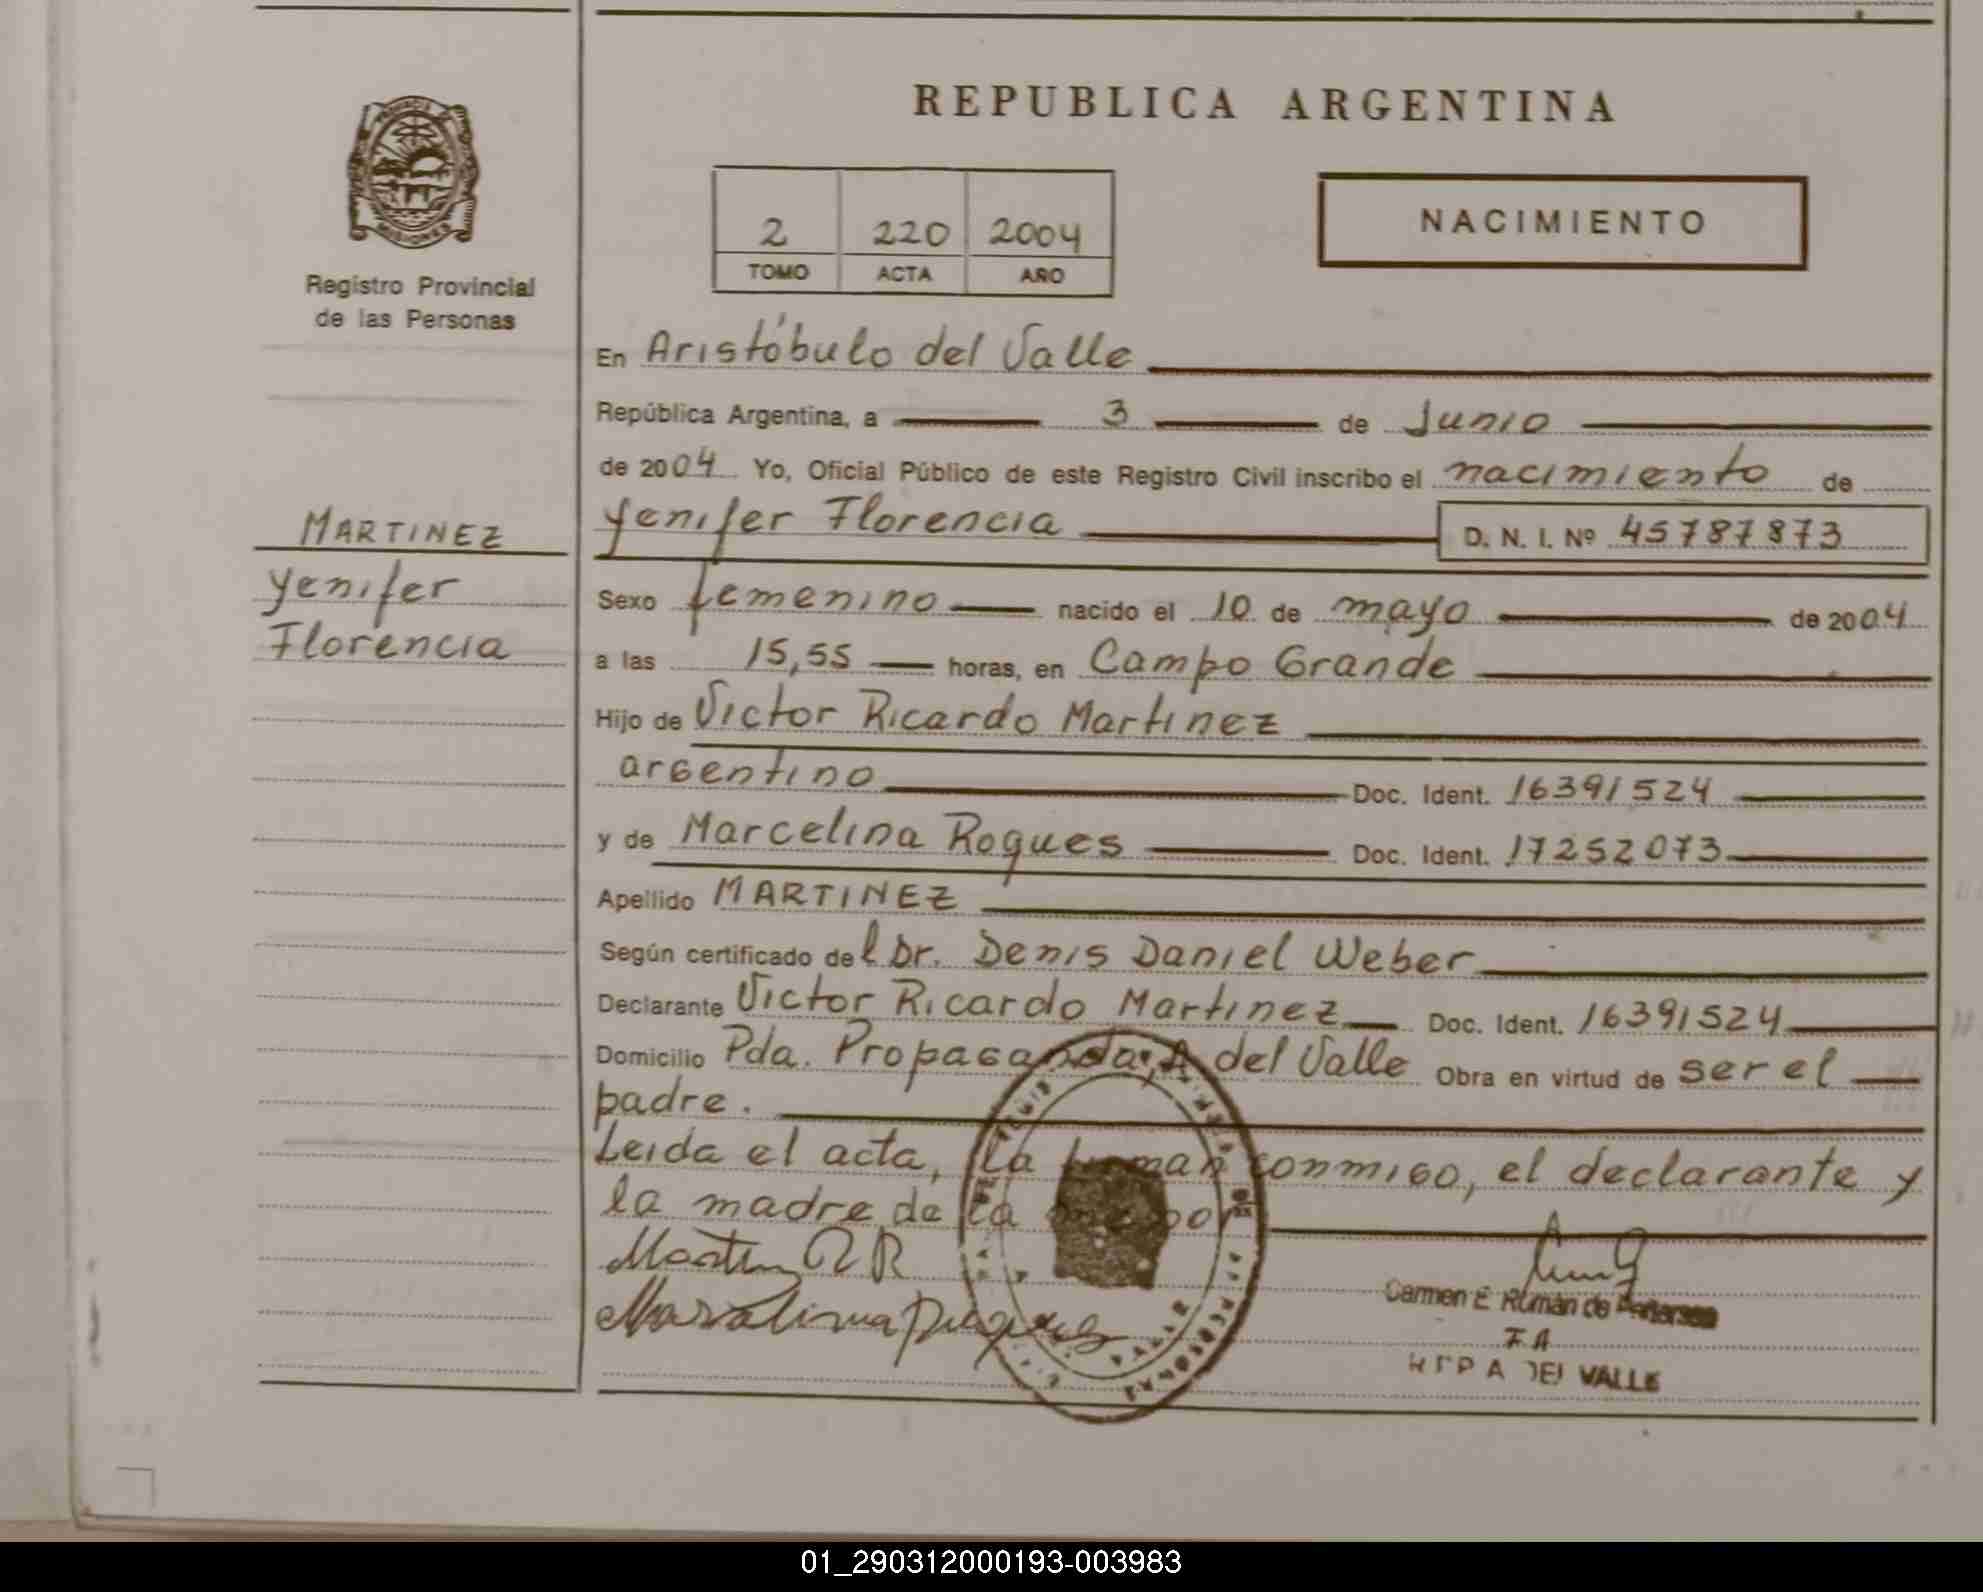 REPUBLICA ARGENTINA
PROVINCIA
MISIONES
Registro Provincial
de las Personas
2 220 2004
TOMO ACTA AÑO
NACIMIENTO
En Aristóbulo del Valle
República Argentina, a 3 de Junio
de 2004 Yo, Oficial Público de este Registro Civil inscribo el nacimiento de
Yenifer Florencia D. N. I. Nº 45787873
MARTINEZ
Yenifer
Florencia
Sexo femenino nacido el 10 de mayo de 2004
a las 15,55 horas, en Campo Grande
Hijo de Victor Ricardo Martinez
argentino Doc. Ident. 16391524
y de Marcelina Roques Doc. Ident. 17252073
Apellido MARTINEZ
Según certificado del Dr. Denis Daniel Weber
Declarante Victor Ricardo Martinez Doc. Ident. 16391524
Domicilio Pda. Propaganda, A del Valle Obra en virtud de ser el
padre.
Leida el acta, la firman conmigo, el declarante y
la madre de la
Carmen E Roman de
F A
A DEL VALLE
01_290312000193-003983